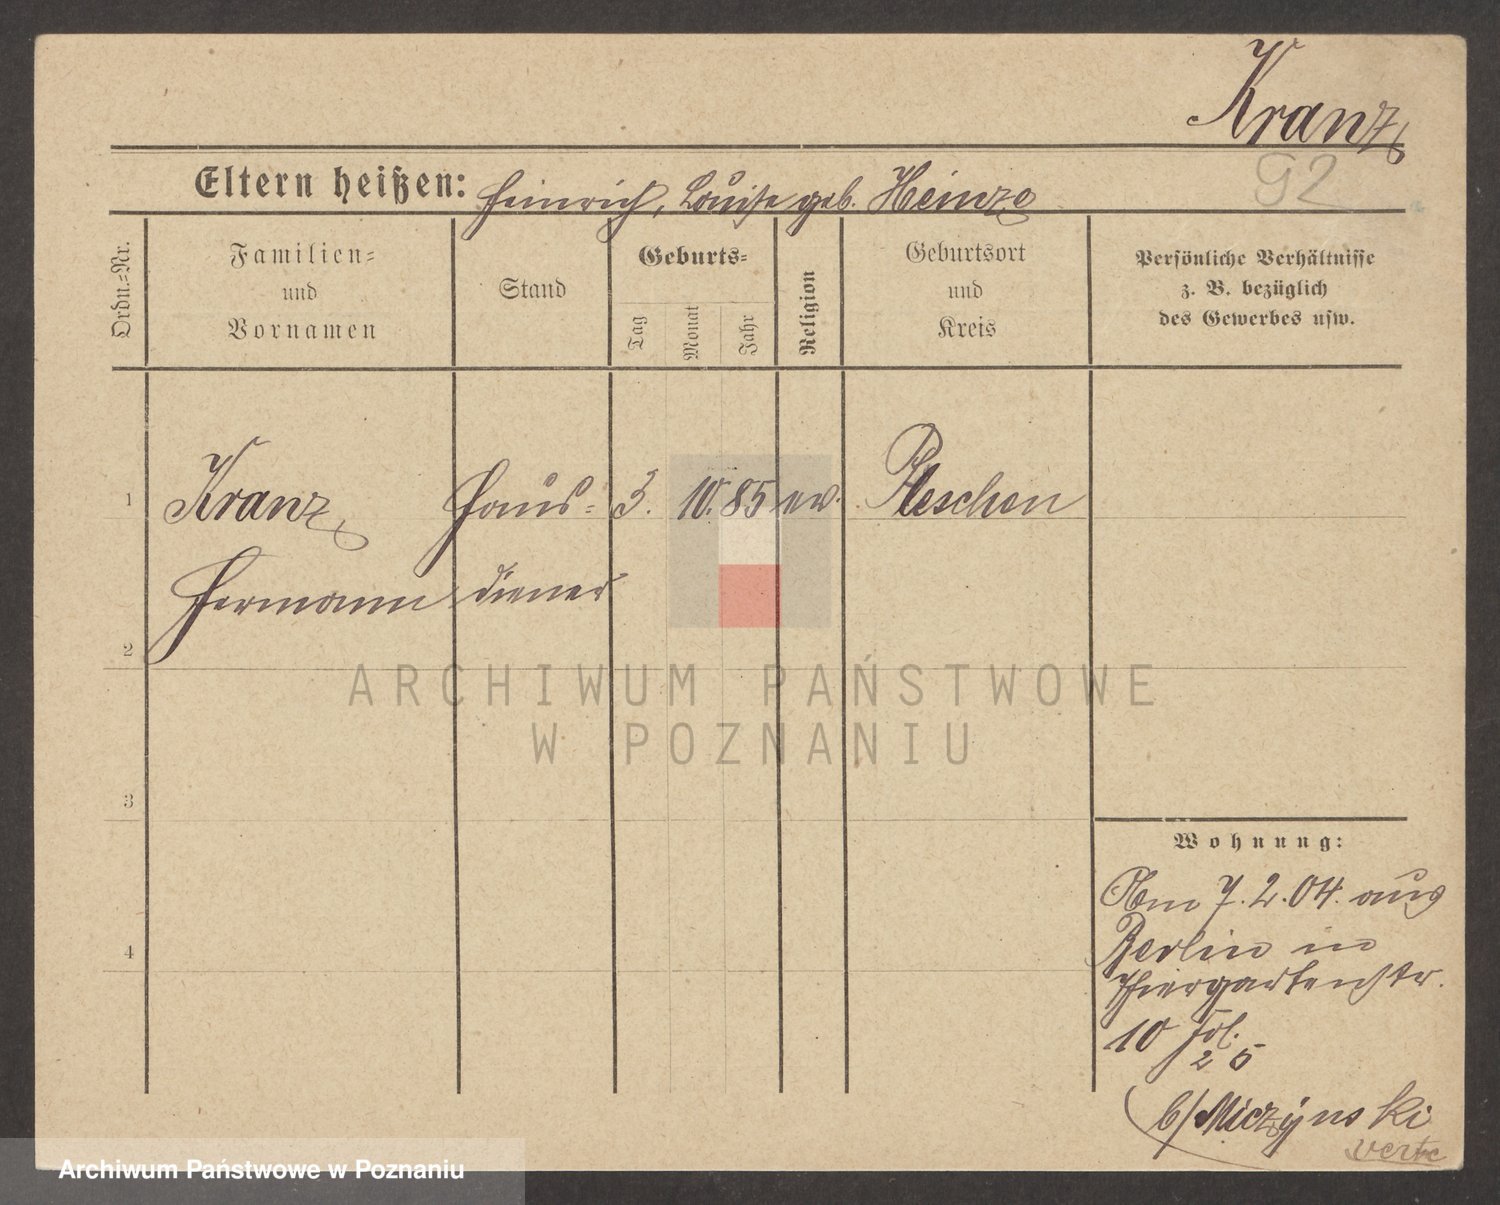 Kranz
92
Eltern heißen: Heinrich, Louise geb. Heinze
Ordn.=Nr.
Familien=
und
Vornamen
Stand
Geburts=
Tag
Monat
Jahr
Religion
Geburtsort
und
Kreis
Persönliche Verhältnisse
z. B. bezüglich
des Gewerbes usw.
1
Kranz Haus= 3. 10. 85 ev. Pleschen
Hermann diener
2
ARCHIWUM PAŃSTWOWE
W POZNANIU
3
Wohnung:
Am 7.2.04. aus
Berlin in
Thiergartenstr.
10
4
2 5
b/ Miczynski
verte
Archiwum Państwowe w Poznaniu